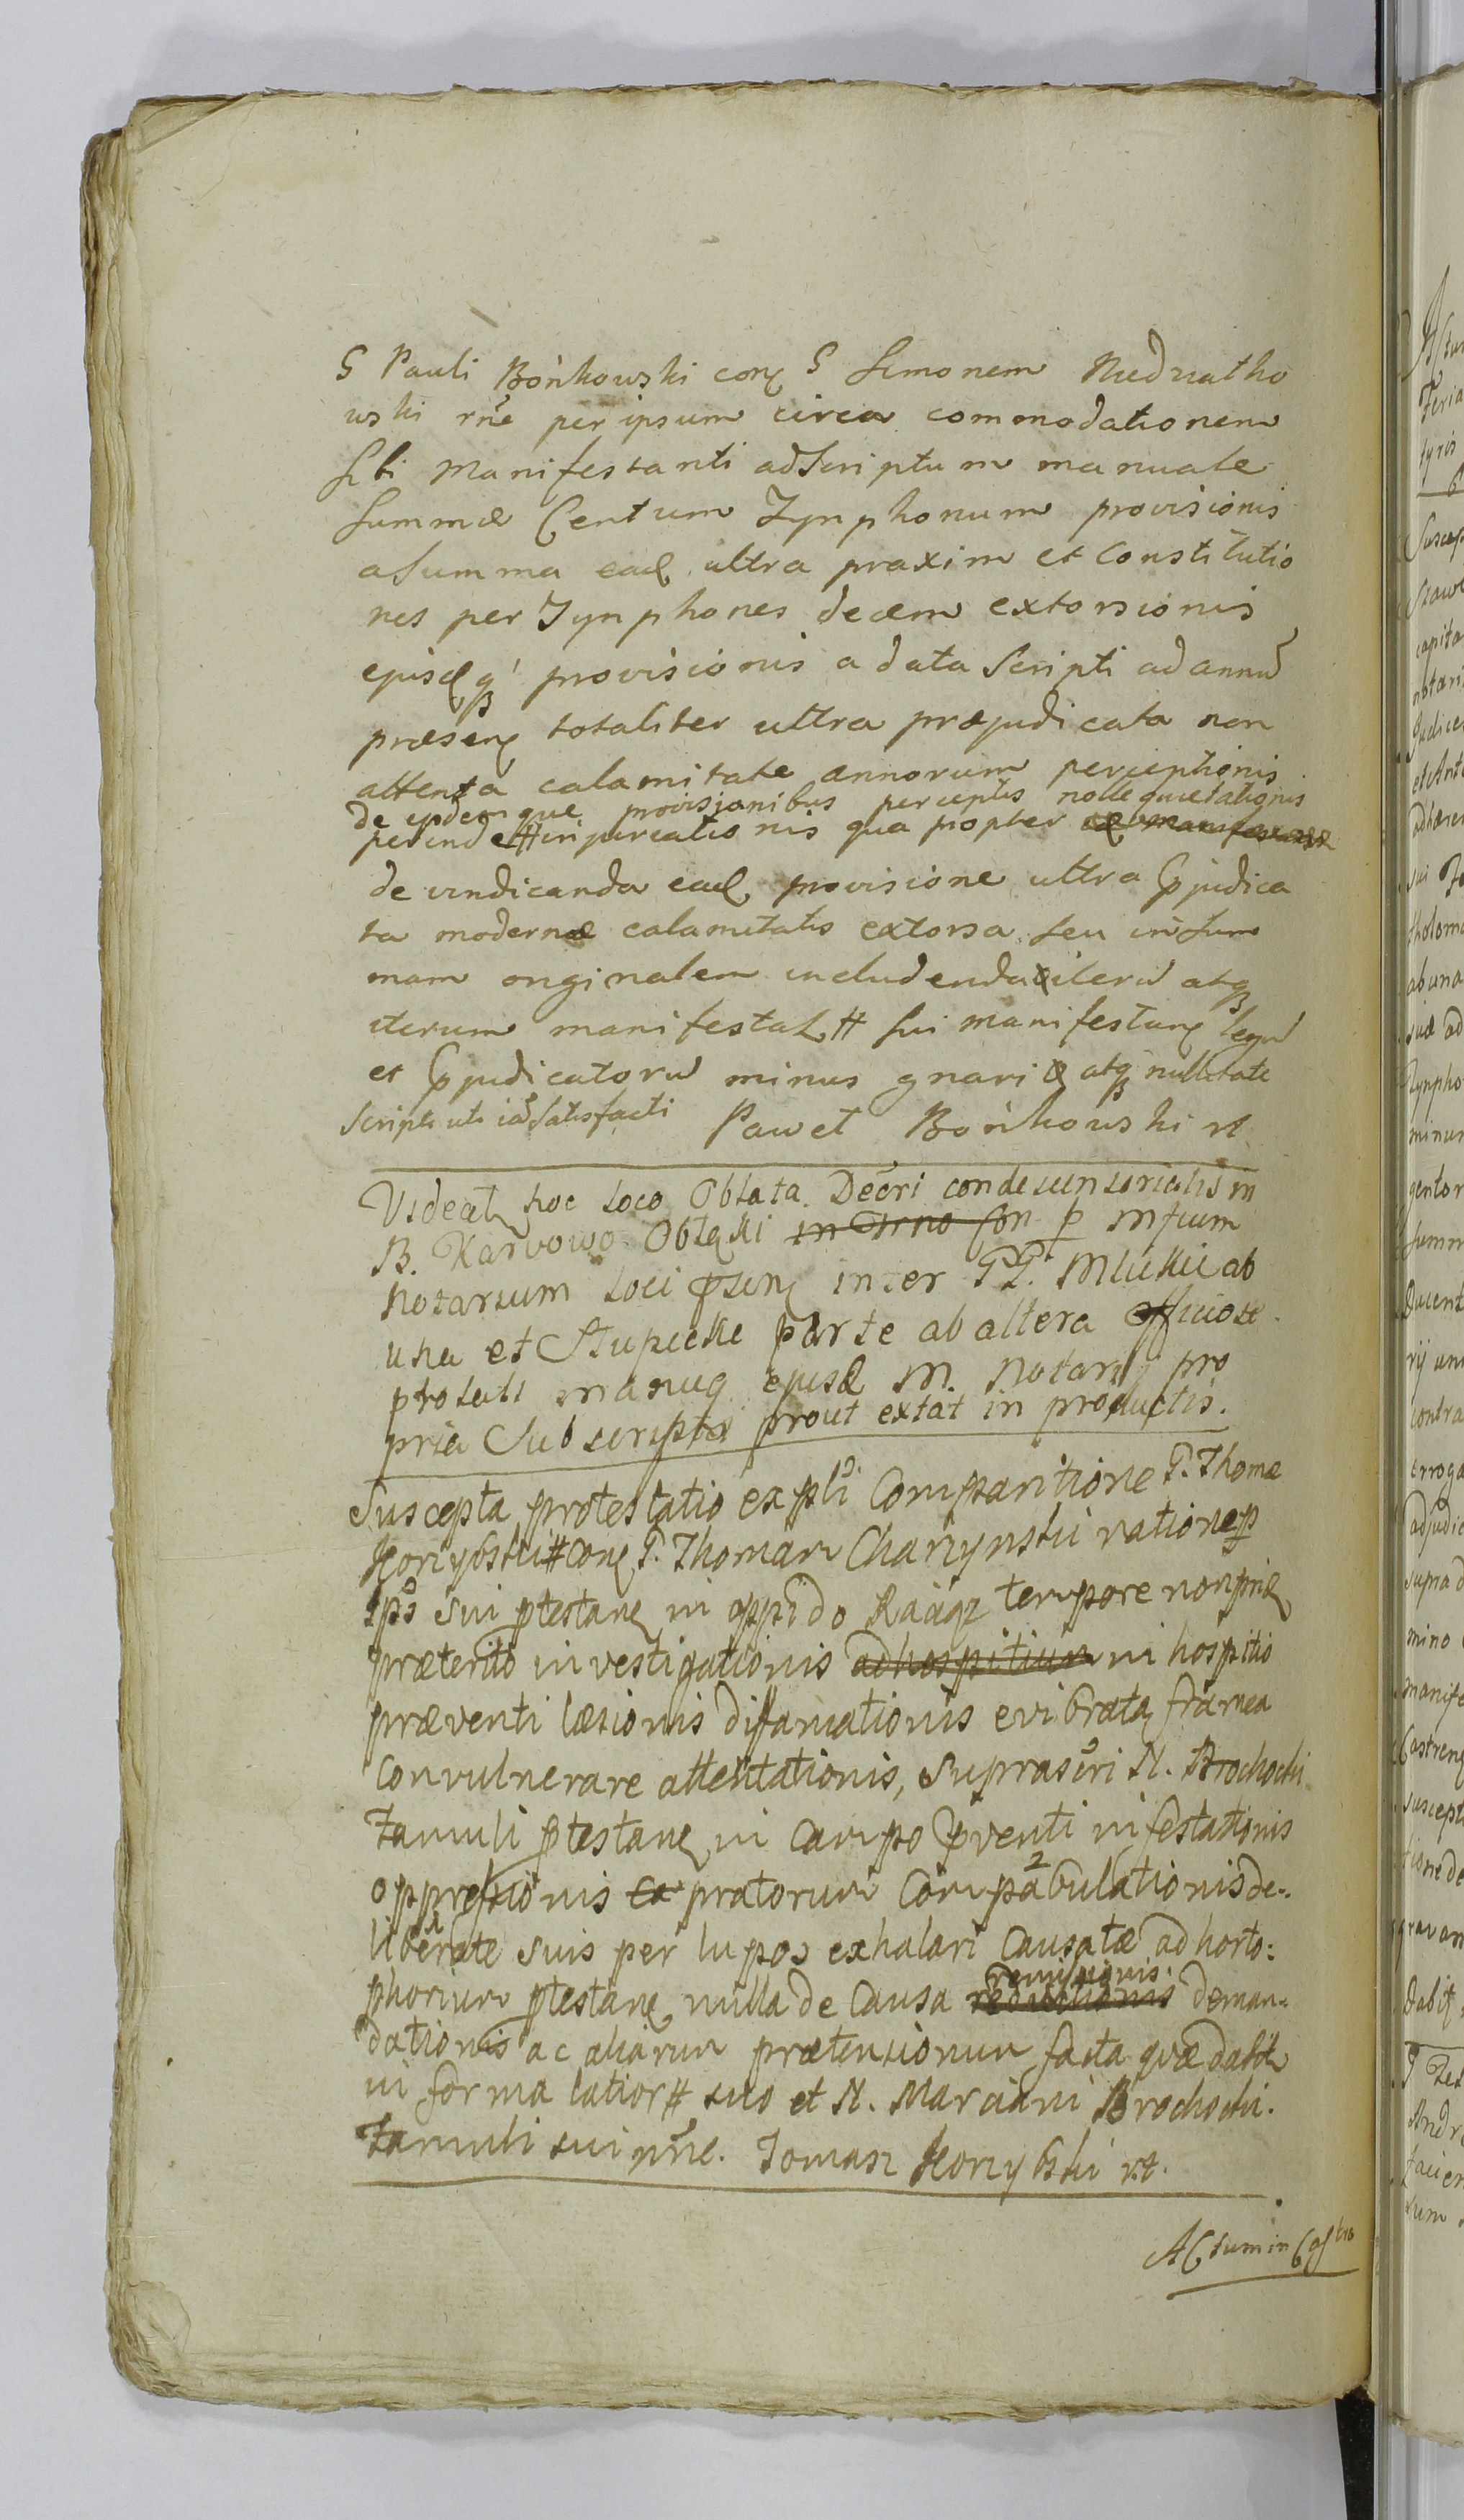 G Pauli Bońkowski con G Simonem Niedziatko
wski rńe per ipsum circa commodationem
sibi Manifestanti ad Scriptum manuale
Summæ Centum Tynphonum provisionis
a Summa ead ultra praxim et Constitutio
nes per Tynphones decem extorsionis
ejusdq provisionis a data Scripti ad annū
præsen totaliter ultra præjudicata non
attenta calamitate annorum perceptionis
de ijsdemque provisionibus perceptis nolle quietationis
perinde # injureationis qua propter
de vindicanda ead provisione ultra pjudica
ta modernæ calamitatis extorsa seu in Sum
mam originalem includenda iterū atq
iterum manifestat # sui manifestan legū
et pjudicatorū minus gnari & atq nullitate
Scripti uti iad satisfacti Paweł Bońkowski rt
Videat hoc loco Oblata Decri condescensorialis in
B. Karwowo Oblęki in Trno Con p Mfium
Notarium loci psen inter GG. Mlickie ab
una et Słupeckie parte ab altera officiose
protuli manuq ejusd M. Notarij pro
pria Subscripta prout extat in productis.
Suscepta protestatio ex pli Comparitione G. Thomæ
Korzybski # con G. Thomam Charzynski ratione p
ips sui ptestan in oppido Raciąz tempore non prid
præterito investigationis ad hospitium in hospitio
præventi læsionis diffamationis evibrata framea
convulnerare attentationis, suprascri N. Brochocki
famuli ptestan in campo pventi infestationis
oppressionis ex pratorum Compabulationis de-
liberate suis per lupos exhalari causatæ ad horto:
phorium ptestan nulla de Causa reductionis remissionis deman-
dationis ac aliarum prætensionum facta quæ dabit
in forma latior # suo et N. Marciani Brochocki
famuli sui nñe. Tomasz Korzybski rt.
Actum in Castro